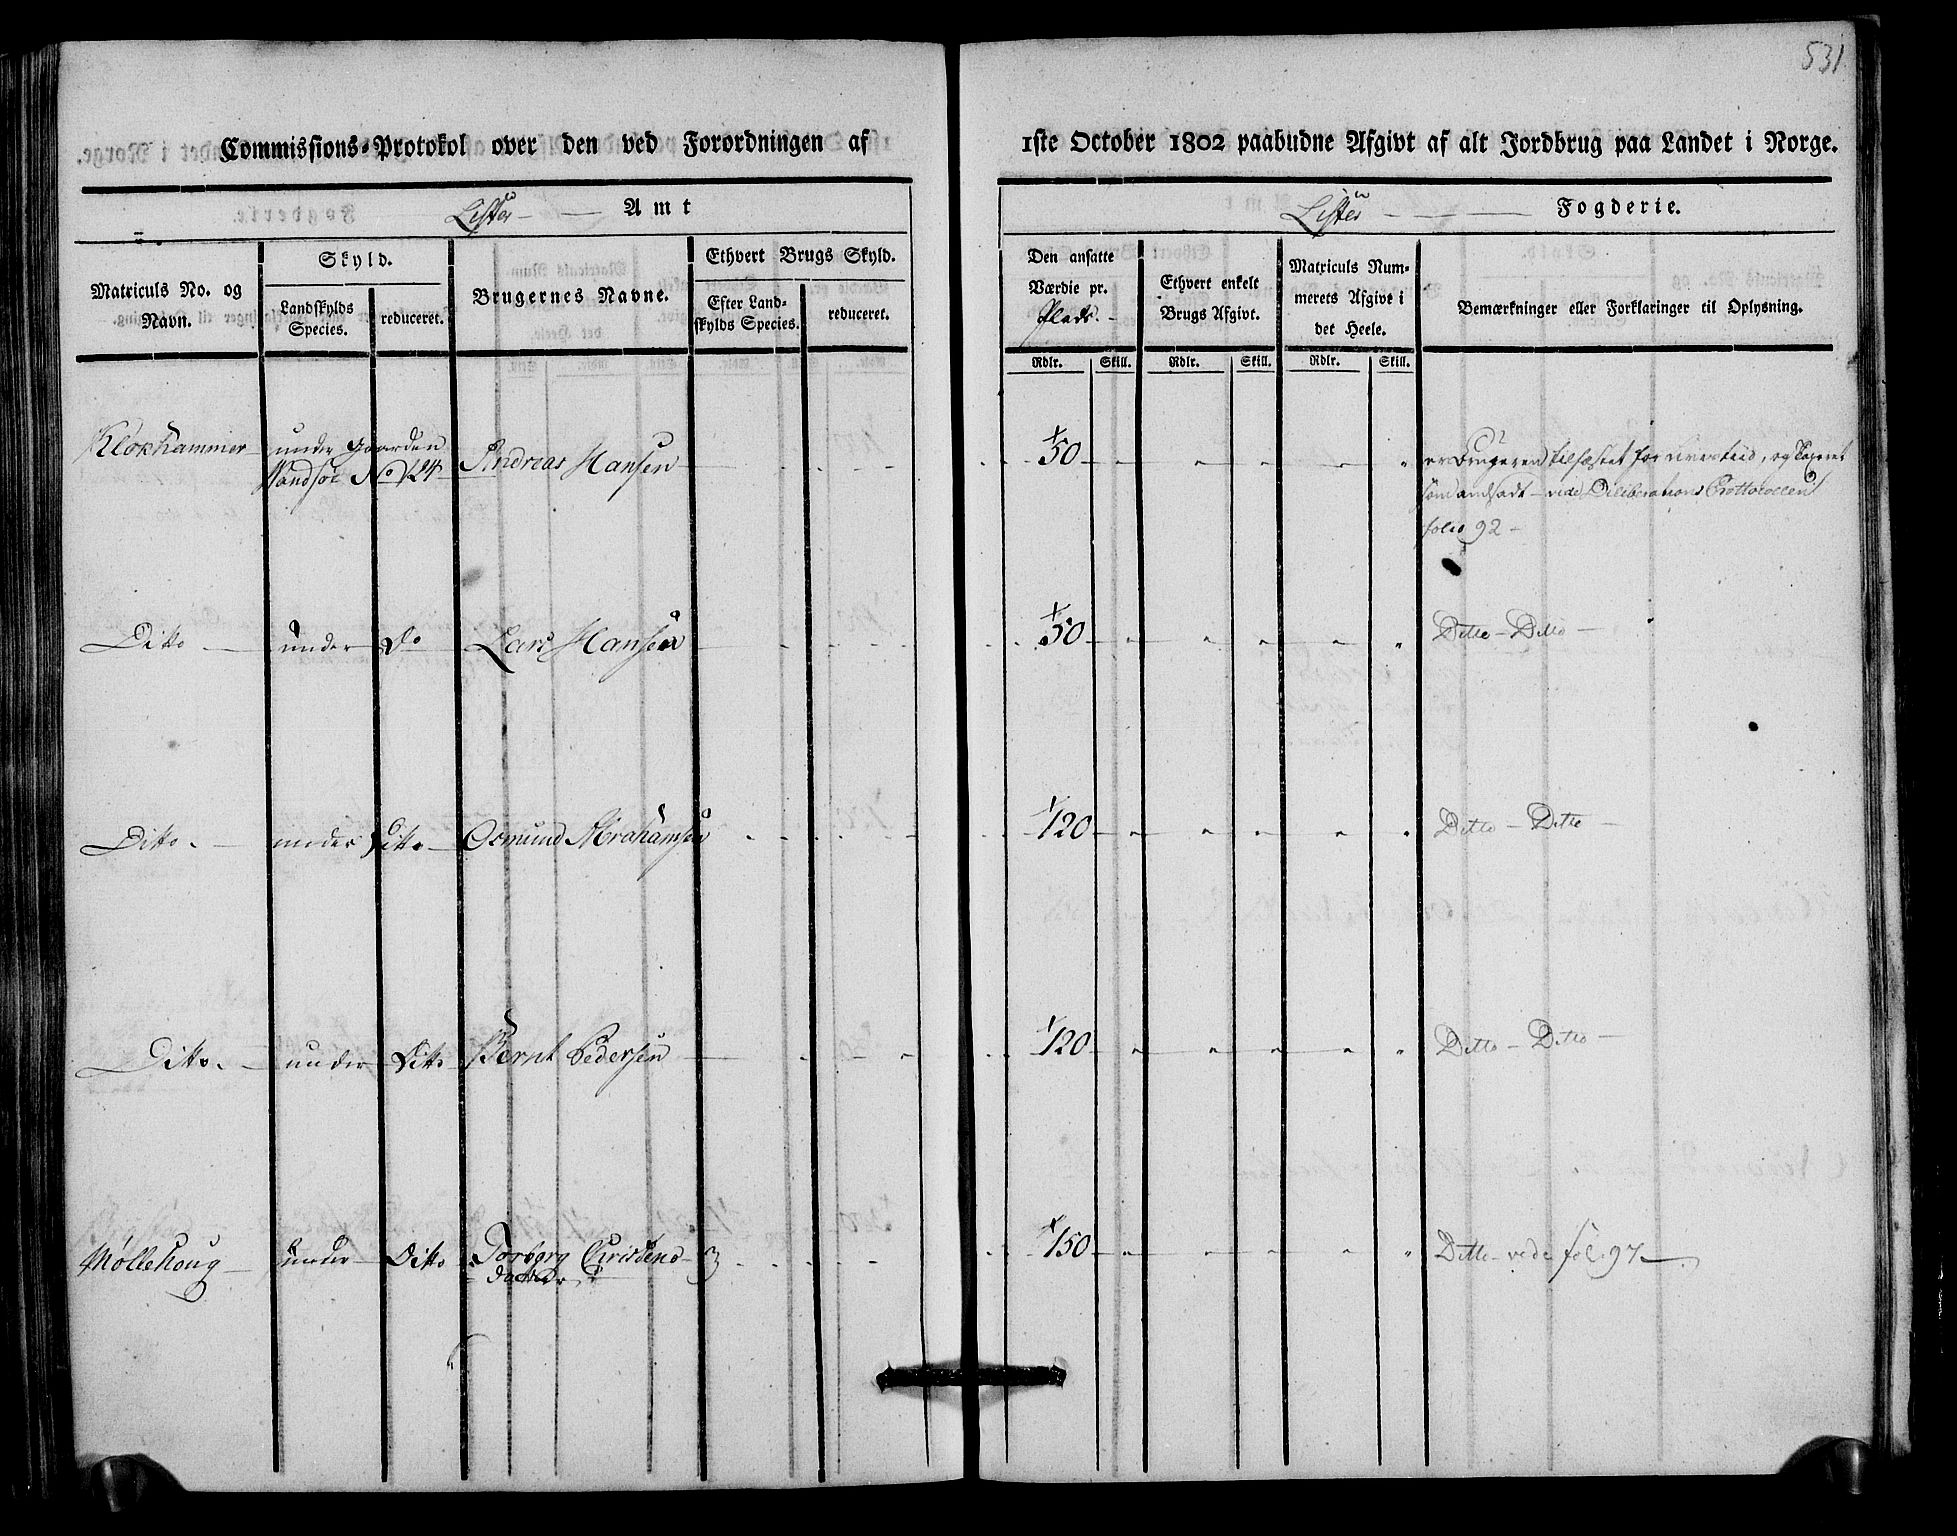 531
Commissions-Protokol over den ved Forordningen af 1ste October 1802 paabudne Afgivt af alt Jordbrug paa Landet i Norge.
Lister Amt
Lister Fogderie.
Matriculs No. og Navn.
Skyld.
Landskylds Species.
reduceret.
Brugernes Navne.
Ethvert Brugs Skyld.
Efter Landskylds Species.
reduceret.
Den ansatte Værdie pr. Plads.
Ethvert enkelt Brugs Afgivt.
Matriculs Nummerets Afgivt i det Heele.
Bemærkninger eller Forklaringer til Oplysning.
Rdlr. Skill. Rdlr. Skill. Rdlr. Skill.
Klokhammer under Gaarden No 124 Andreas Hansen 50 er Brugeren tilfæstet for Livestiid, og Taxeret
som andsadt vide Deliberations Prottocollen
folio 92
Ditto under Do Lars Hansen 50 Ditto Ditto
Ditto under Ditto Osmund Abrahamsen 120 Ditto Ditto
Ditto under Ditto Bernt Pedersen 120 Ditto Ditto
Møllehoug under Ditto Torborg Christens 150 Ditto vide fol. 97
datter